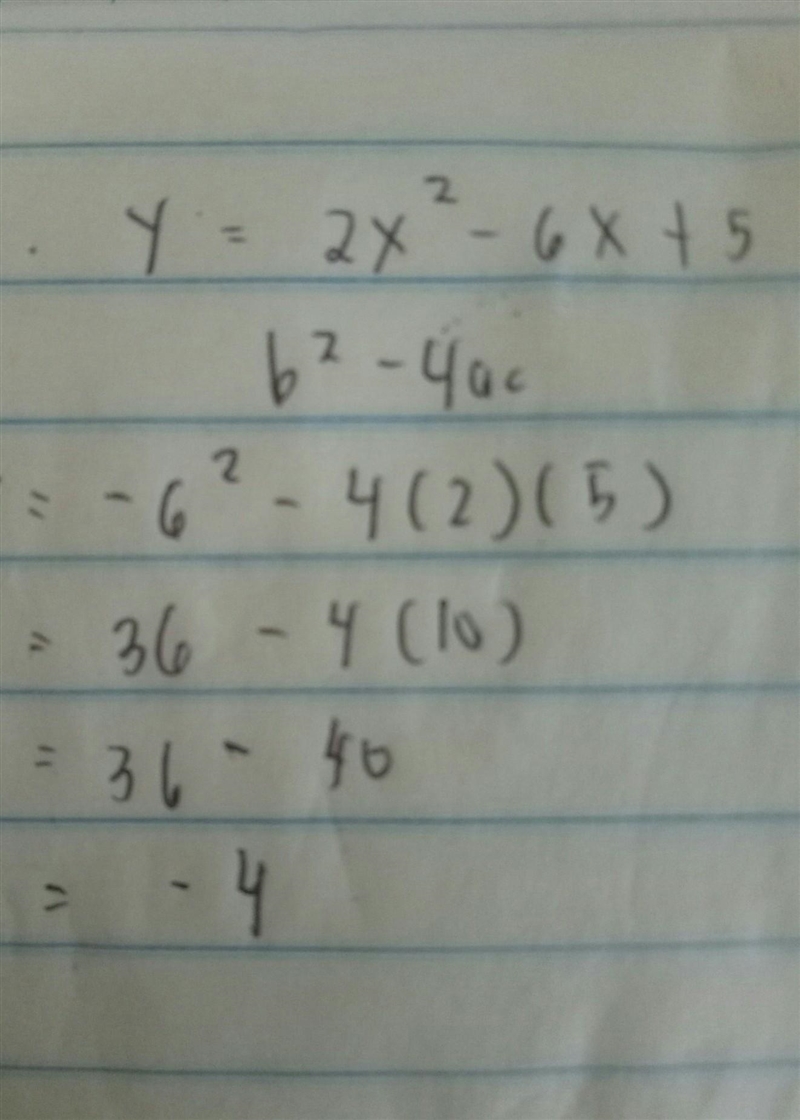 . Y = 2x² - 6x + 5
b² - 4ac
= -6² - 4(2)(5)
= 36 - 4(10)
= 36 - 40
= -4